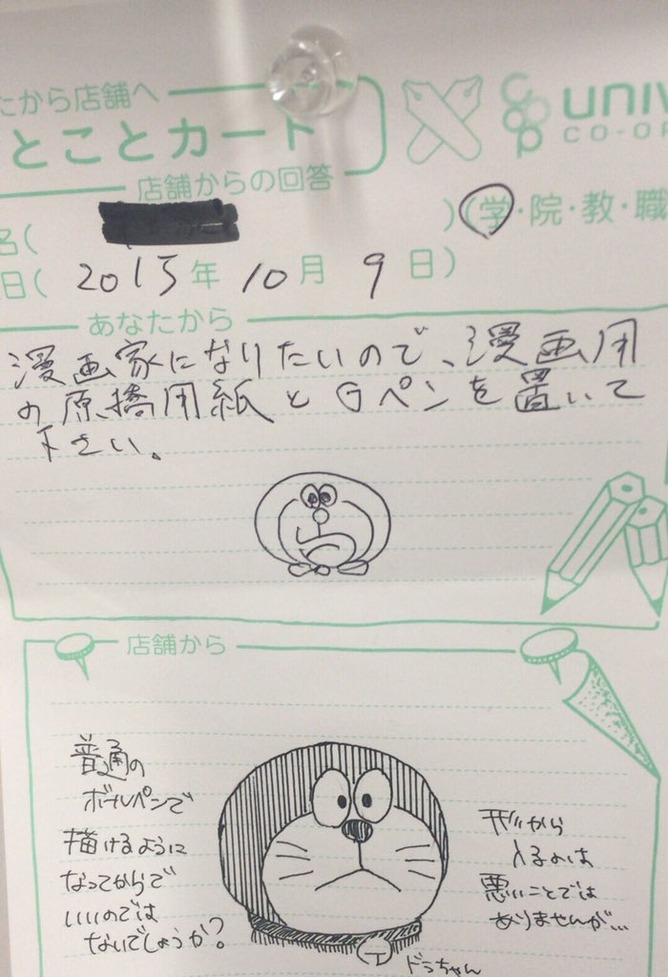 たから店舗へ
とことカード
univ
co-op
店舗からの回答
名( )(学・院・教・職
日( 2015年 10月 9日)
あなたから
漫画家になりたいので、漫画用
の原稿用紙とGペンを置いて
下さい。
店舗から
普通の
ボールペンで
描けるように
なってからで
いいのでは
ないでしょうか?
形から
入るのは
悪いことでは
ありませんが…
ドラちゃん